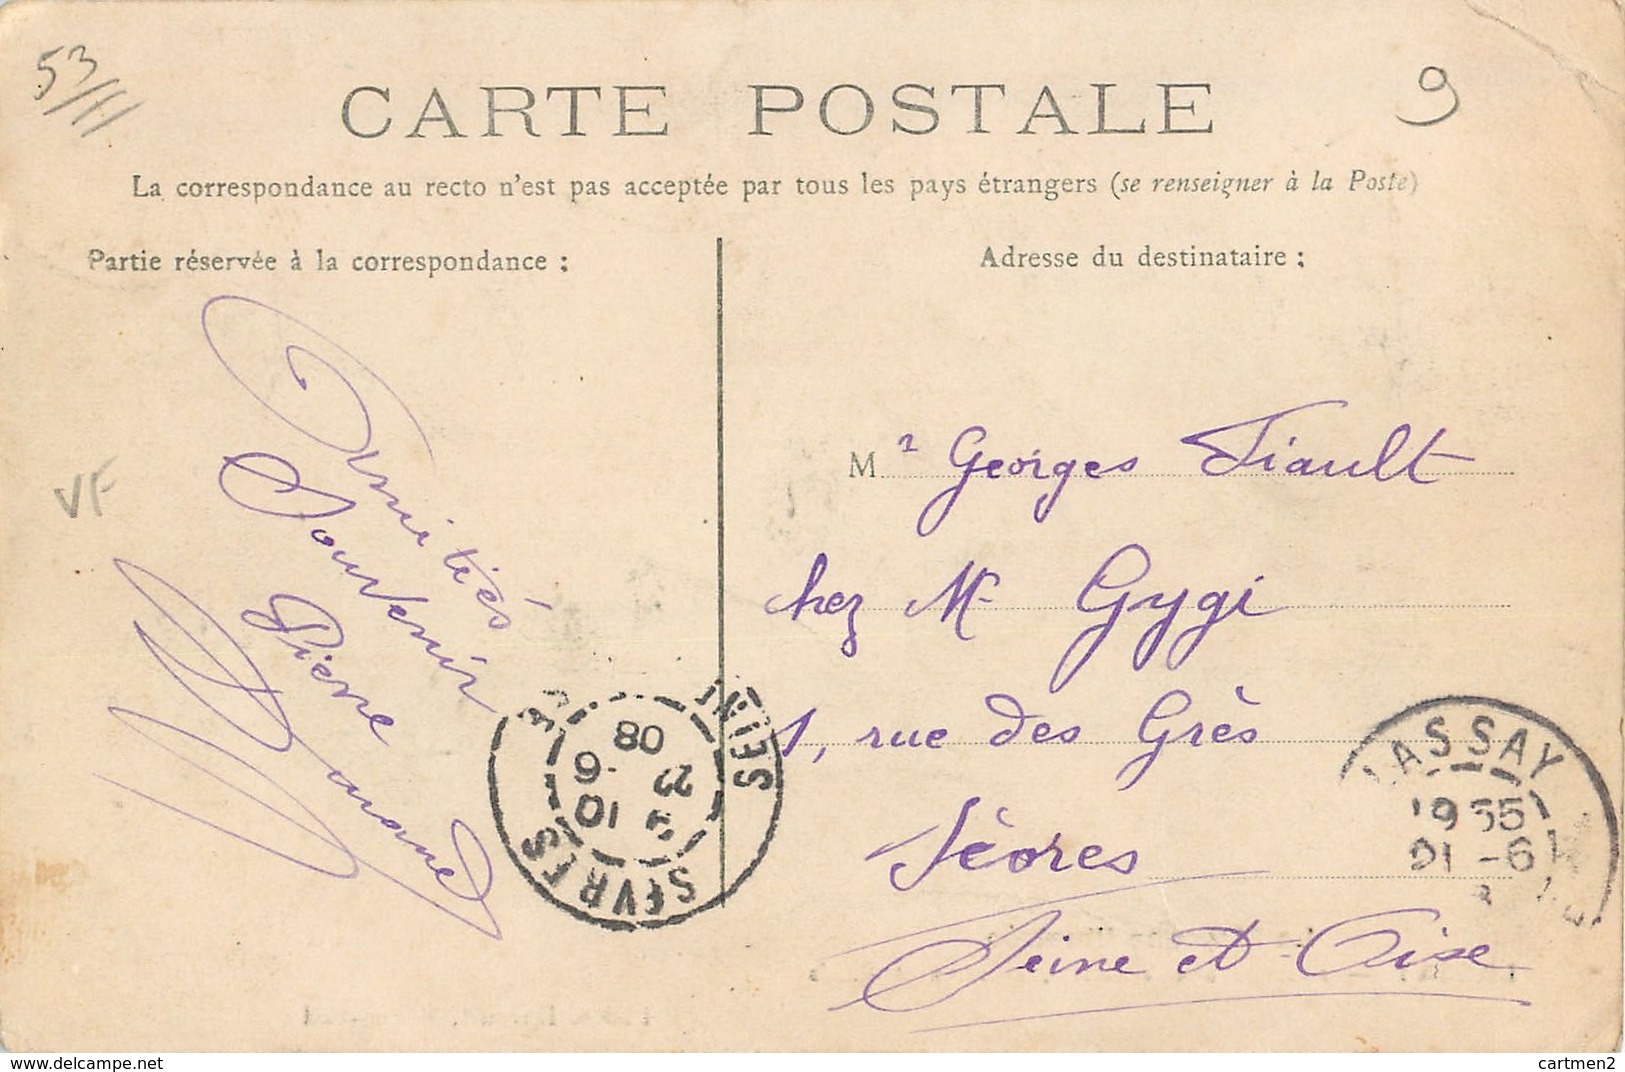 53/H
9
CARTE POSTALE
La correspondance au recto n'est pas acceptée par tous les pays étrangers (se renseigner à la Poste)
Partie réservée à la correspondance :
Adresse du destinataire :
Amitiés
Souvenir
Pierre
VF
Mr Georges Tiault
chez Mr Gygi
1, rue des Grès
Sèvres
Seine et Oise
SÈVRES
SEINE
10
23 -6
08
LASSAY
1935
21 -6
delcampe.net
cartmen2